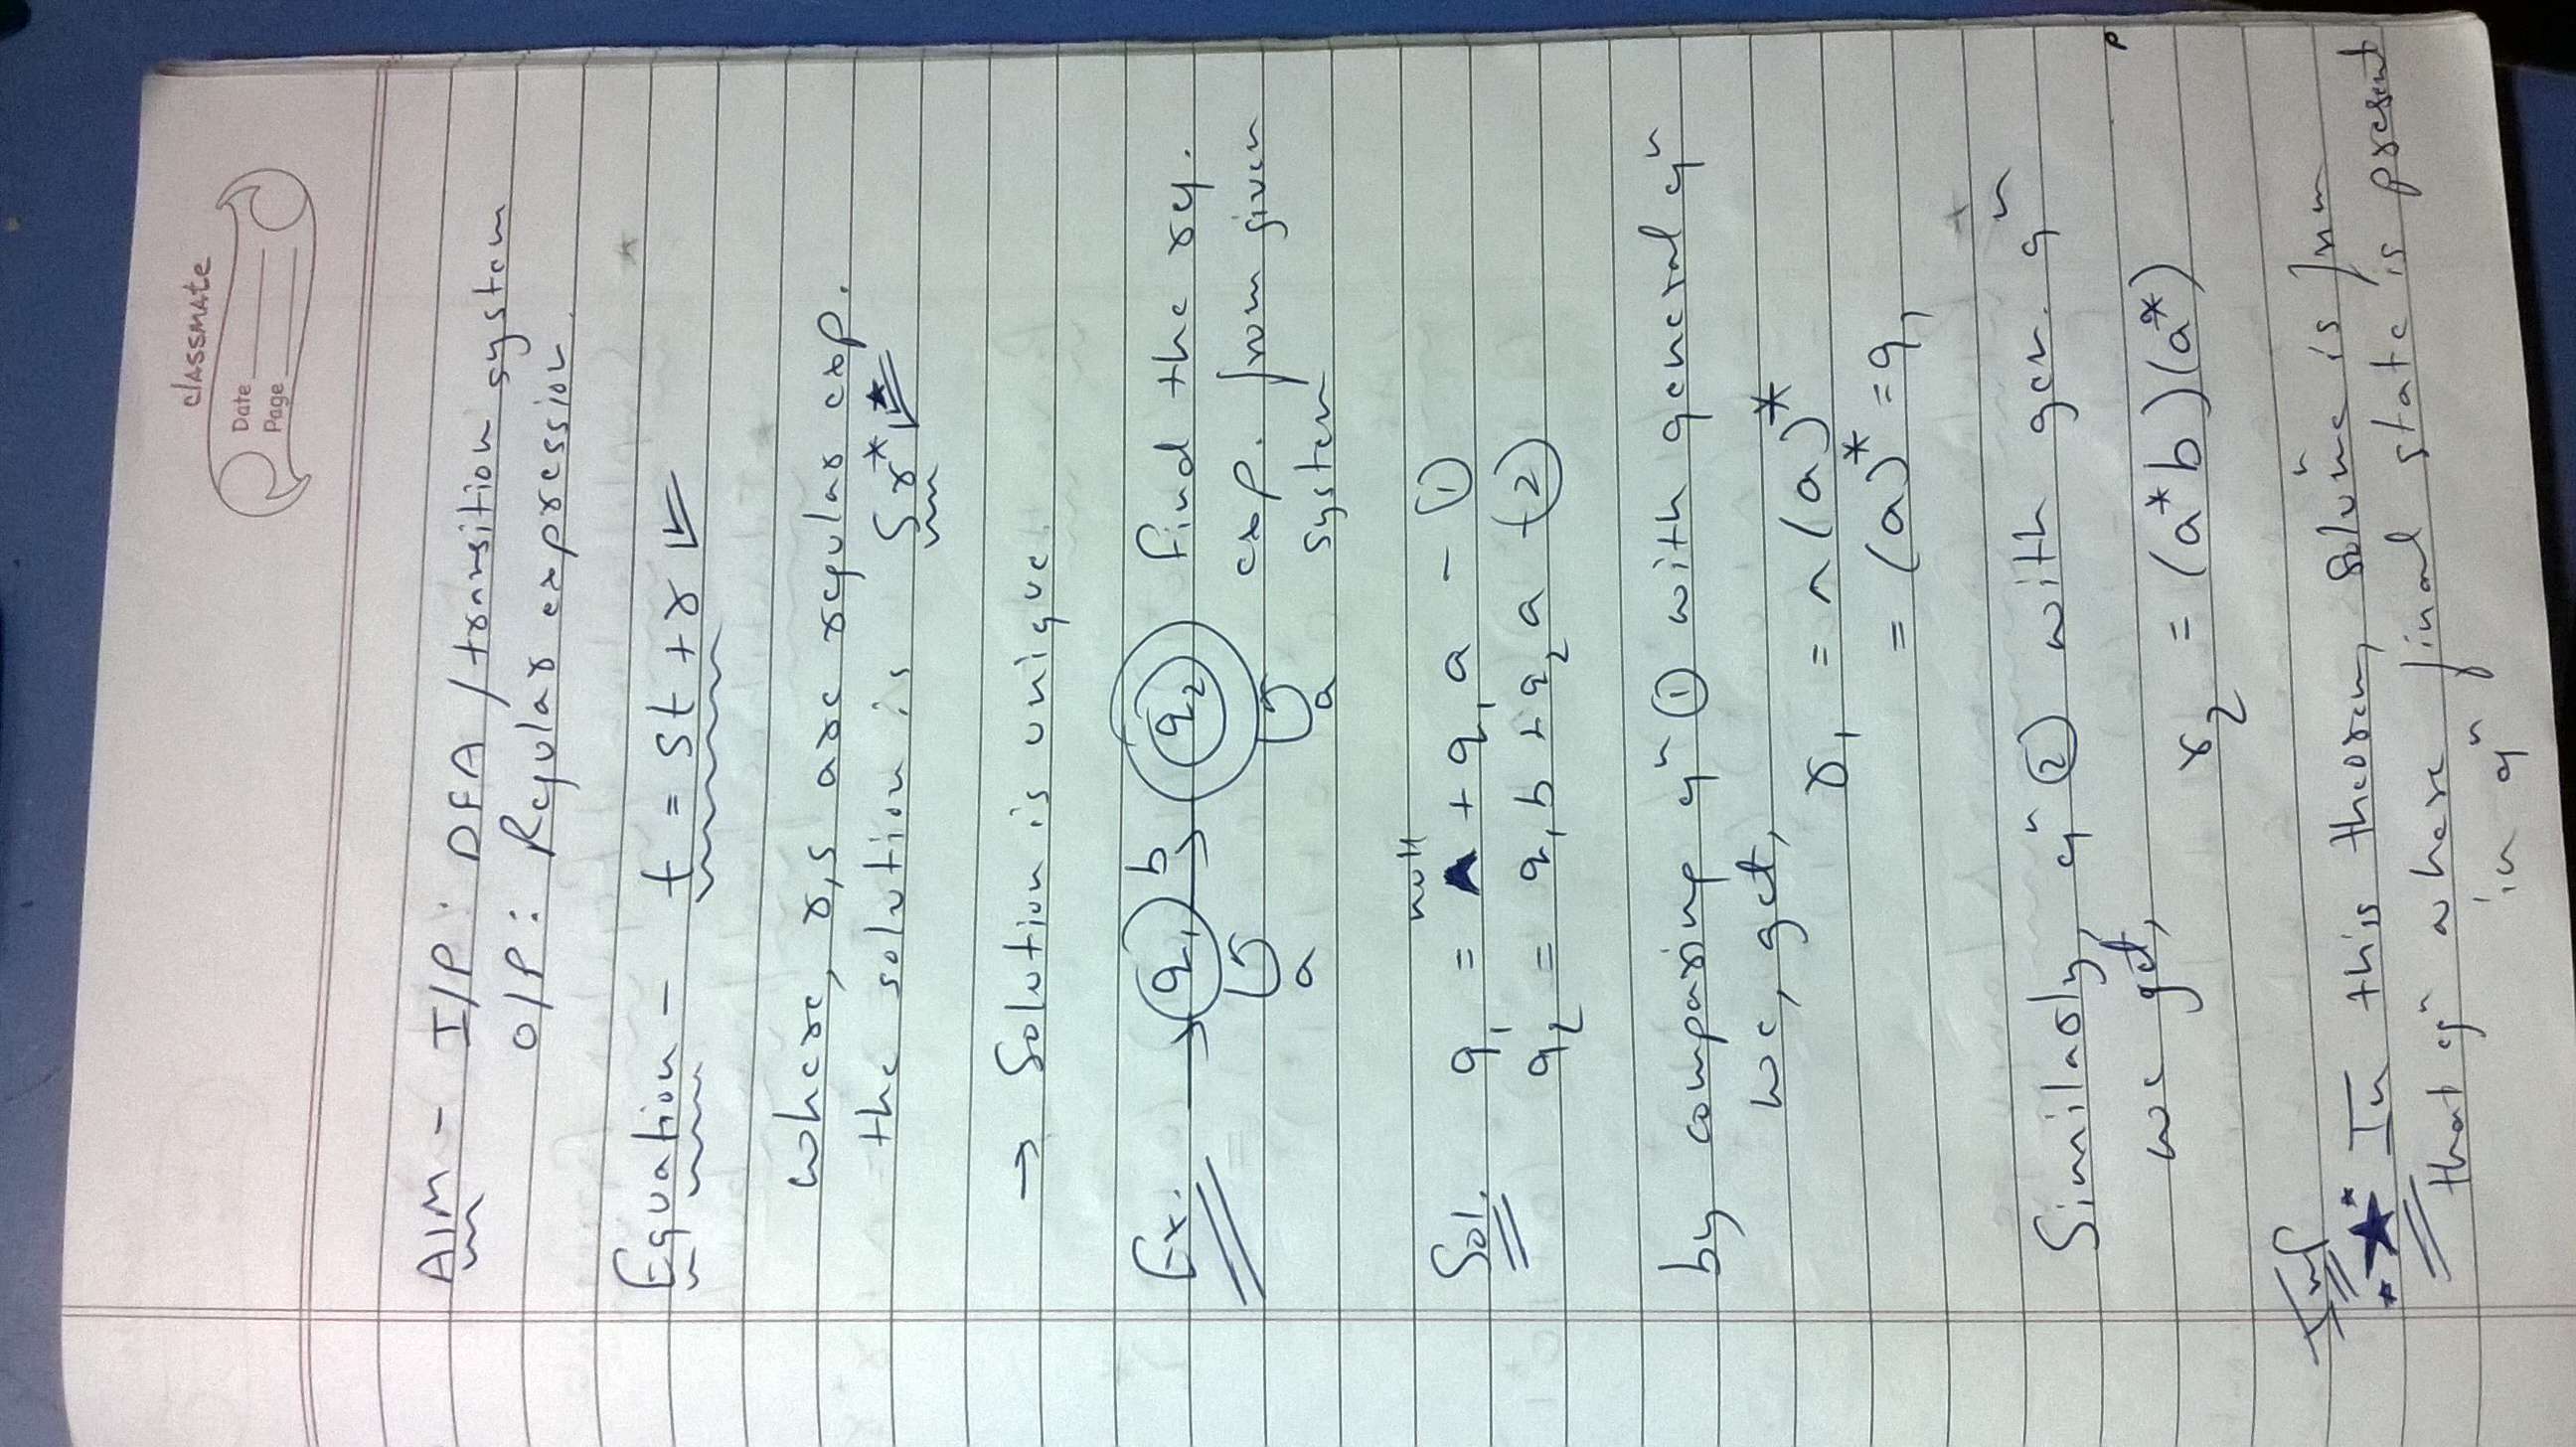 classmate
Date
Page
AIM - I/P : DFA / transition system
O/P : Regular expression.
Equation - t = st + r
where, r,s are regular exp.
the solution is Sr*
→ Solution is unique.
Ex. q1 b q2 Find the reg.
exp. from given
a a system
null
Sol. q1 = Λ + q1 a - ①
q2 = q1 b + q2 a - ②
by comparing eqn ① with general eqn
we, get,
r1 = ^(a)*
= (a)* = q1
Similarly, eqn ② with gen. eqn
we get,
r2 = (a*b)(a*)
Imp
In this theorem, is from
that eqn where final state is present
in eqn